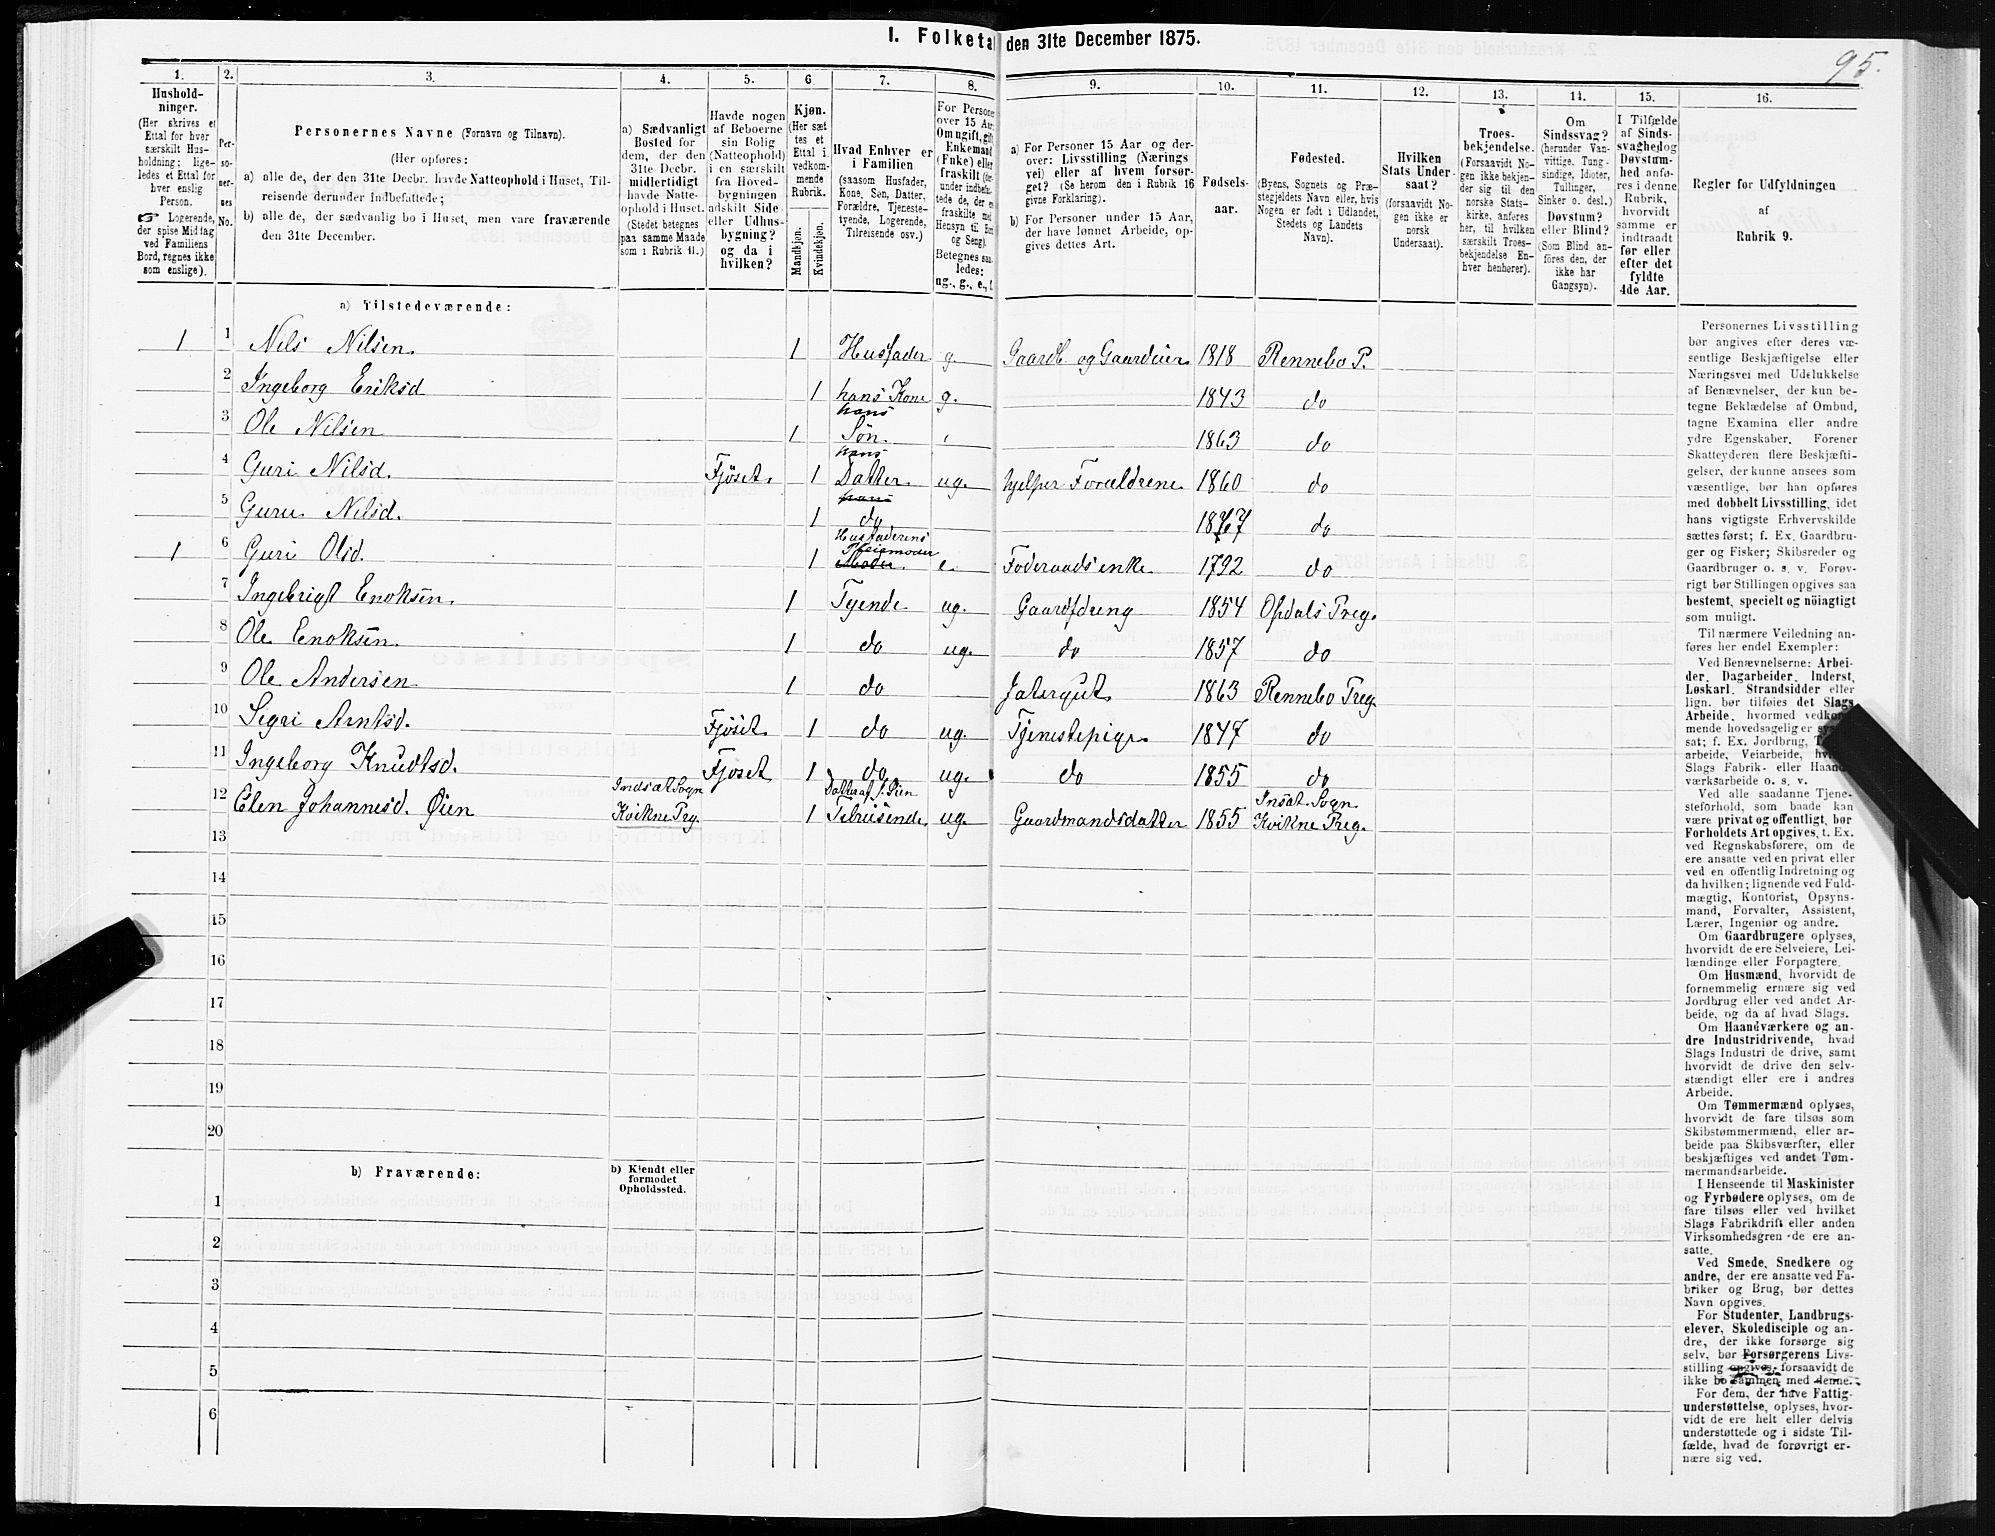 I. Folketal den 31te December 1875.
95.
1. 2. 3. 4. 5. 6. 7. 8. 9. 10. 11. 12. 13. 14. 15. 16.
Hushold-
ninger.
(Her skrives et
Ettal for hver
særskilt Hus-
holdning; lige-
ledes et Ettal for
hver enslig
Person.
Logerende,
der spise Middag
ved Familiens
Bord, regnes ikke
som enslige).
Per-
so-
ner-
nes
No.
Personernes Navne (Fornavn og Tilnavn).
(Her opføres:
a) alle de, der den 31te Decbr. havde Natteophold i Huset, Til-
reisende derunder indbefattede;
b) alle de, der sædvanlig bo i Huset, men vare fraværende
den 31te December.
a) Sædvanligt
Bosted for
dem, der den
31te Decbr.
midlertidigt
havde Natte-
ophold i Huset.
(Stedet betegnes
paa samme Maade
som i Rubrik 11.)
Havde nogen
af Beboerne
sin Bolig
(Natteophold)
i en særskilt
fra Hoved-
bygningen
adskilt Side-
eller Udhus-
bygning?
og da i
hvilken?
Kjøn.
(Her sæt-
tes et
Ettal i
vedkom-
mende
Rubrik.
Mandkjøn.
Kvindekjøn.
Hvad Enhver er
i Familien
(saasom Husfader,
Kone, Søn, Datter,
Forældre, Tjeneste-
tyende, Logerende,
Tilreisende osv.)
For Personer
over 15 Aar:
Om ugift, gift,
Enkemand
(Enke) eller
fraskilt (her-
under indbefat-
tede de, der ere
fraskilte med
Hensyn til Bord
og Seng).
Betegnes saa-
ledes:
ug., g., e., f.
a) For Personer 15 Aar og der-
over: Livsstilling (Nærings-
vei) eller af hvem forsør-
get? (Se herom den i Rubrik 16
givne Forklaring).
b) For Personer under 15 Aar,
der have lønnet Arbeide, op-
gives dettes Art.
Fødsels-
aar.
Fødested.
(Byens, Sognets og Præ-
stegjeldets Navn eller, hvis
Nogen er født i Udlandet,
Stedets og Landets
Navn).
Hvilken
Stats Under-
saat?
(forsaavidt No-
gen ikke er
norsk
Undersaat).
Troes-
bekjendelse.
(Forsaavidt No-
gen ikke bekjen-
der sig til den
norske Stats-
kirke, anføres
her, til hvilken
særskilt Troes-
bekjendelse En-
hver henhører).
Om
Sindssvag?
(herunder Van-
vittige, Tung-
sindige, Idioter,
Tullinger,
Sinker o. desl.)
Døvstum?
eller Blind?
(Som Blind an-
føres den, der
ikke har
Gangsyn).
I Tilfælde
af Sinds-
svaghed og
Døvstum-
hed anfø-
res i denne
Rubrik,
hvorvidt
samme er
indtraadt
før eller
efter det
fyldte
4de Aar.
Regler for Udfyldningen
af
Rubrik 9.
a) Tilstedeværende:
1 1 Nils Nilsen. 1 Husfader g. Gaardb. og Gaardeier 1818 Rennebo P.
2 Ingeborg Eriksd 1 hans Kone g. 1843 do
3 Ole Nilsen 1 hans Søn. 1863 do
4 Guri Nilsd. Fjöset. 1 hans Datter ug. hjelper Forældrene 1860 do
5 Guru Nilsd. 1 hans do 1867 do
1 6 Guri Olsd. 1 Husfaderens Pleiemoder Moder. e. Föderaadsenke 1792 do
7 Ingebrigt Enoksen. 1 Tyende ug. Gaardsdreng 1854 Opdals Preg.
8 Ole Enoksen. 1 do ug. do 1857 do
9 Ole Andersen 1 do Jætergut 1863 Rennebo Preg.
10 Sigri Arntsd. Fjöset 1 do ug. Tjenestepige 1847 do
11 Ingeborg Knudtsd. Fjöset 1 do ug. do 1855 do
12 Elen Johannesd. Øien Indsat Sogn Kvikne Prg. 1 Tilreisende ug. Gaardmandsdatter 1855 Insat Sogn Kvikne Preg.
13
14
15
16
17
18
19
20
b) Fraværende:
b) Kjendt eller
formodet
Opholdssted.
1
2
3
4
5
6
Personernes Livsstilling
bør angives efter deres væ-
sentlige Beskjæftigelse eller
Næringsvei med Udelukkelse
af Benævnelser, der kun be-
tegne Beklædelse af Ombud,
tagne Examina eller andre
ydre Egenskaber. Forener
Skatteyderen flere Beskjæfti-
gelser, der kunne ansees som
væsentlige, bør han opføres
med dobbelt Livsstilling, idet
hans vigtigste Erhvervskilde
sættes først; f. Ex. Gaardbru-
ger og Fisker; Skibsreder og
Gaardbruger o. s. v. Forøv-
rigt bør Stillingen opgives saa
bestemt, specielt og nöiagtigt
som muligt.
Til nærmere Veiledning an-
føres her endel Exempler:
Ved Benævnelserne: Arbei-
der, Dagarbeider, Inderst,
Løskarl, Strandsidder eller
lign. bør tilføies det Slags
Arbeide, hvormed vedkom-
mende hovedsagelig er
sat; f. Ex. Jordbrug,
arbeide, Veiarbeide,
Slags Fabrik- eller Haand-
værksarbeide o. s. v.
Ved alle saadanne Tjene-
steforhold, som baade kan
være privat og offentligt, bør
Forholdets Art opgives, t. Ex.
ved Regnskabsførere, om de
ere ansatte ved en privat eller
ved en offentlig Indretning og
da hvilken; lignende ved Fuld-
mægtig, Kontorist, Opsyns-
mand, Forvalter, Assistent,
Lærer, Ingeniør og andre.
Om Gaardbrugere oplyses,
hvorvidt de ere Selveiere, Lei-
lændinge eller Forpagtere.
Om Husmænd, hvorvidt de
fornemmelig ernære sig ved
Jordbrug eller ved andet Ar-
beide, og da af hvad Slags.
Om Haandværkere og an-
dre Industridrivende, hvad
Slags Industri de drive, samt
hvorvidt de drive den selv-
stændigt eller ere i andres
Arbeide.
Om Tømmermænd oplyses,
hvorvidt de fare tilsøs som
Skibstømmermænd, eller ar-
beide paa Skibsværfter, eller
beskjæftiges ved andet Tøm-
mermandsarbeide.
I Henseende til Maskinister
og Fyrbødere oplyses, om de
fare tilsøs eller ved hvilket
Slags Fabrikdrift eller anden
Virksomhedsgren de ere an-
satte.
Ved Smede, Snedkere og
andre, der ere ansatte ved Fa-
briker og Brug, bør dettes
Navn opgives.
For Studenter, Landbrugs-
elever, Skoledisciple og an-
dre, der ikke forsørge sig
selv, bør Forsørgerens Livs-
stilling opgives, forsaavidt de
ikke bo sammen med denne.
For dem, der have Fattig-
understøttelse, oplyses, hvor-
vidt de ere helt eller delvis
understøttede og i sidste Til-
fælde, hvad de forøvrigt er-
nære sig ved.